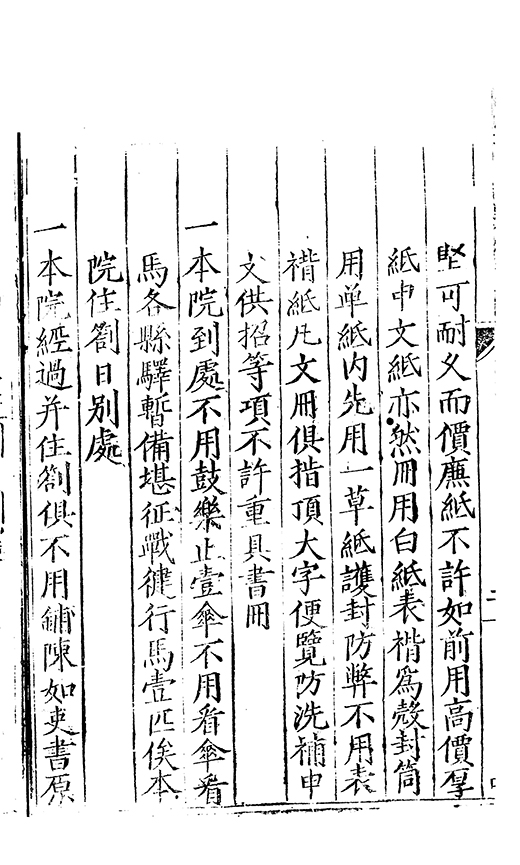 堅可耐久而價廉紙不許如前用高價厚
紙申文紙亦然冊用白紙表褙爲殻封筒
用单紙内先用一草紙護封防弊不用表
褙紙凡文冊俱揩頂大字便覽防洗補申
文供招等項不許重具書冊
一本院到處不用鼓樂止壹傘不用看傘看
馬各縣驛暫備堪征戰徤行馬壹匹俟本
院住劄日別處
一本院經過并住劄俱不用鋪陳如吏書原